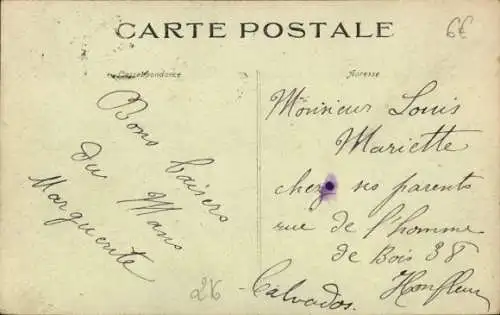 CARTE POSTALE
6€
Correspondance
Adresse
Bons baisers
du Mans
Marguerite
Monsieur Louis
Mariette
chez ses parents
rue de l'homme
de Bois 38
Honfleur
Calvados.